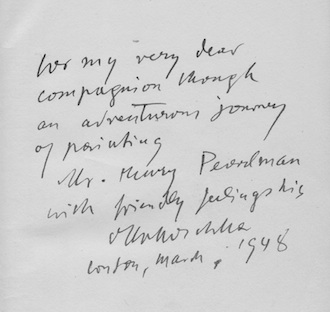 for my very dear
compagnion though
an adventurous journey
of painting
Mr. Henry Pearlman
with friendly feelings his
OKokoschka
London, March, 1948